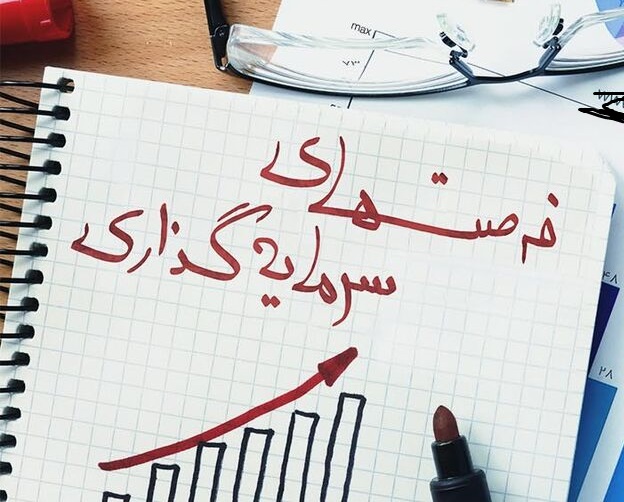 max
۷۳
فرصتهای
سرمایه گذاری
۴۸
۲۸